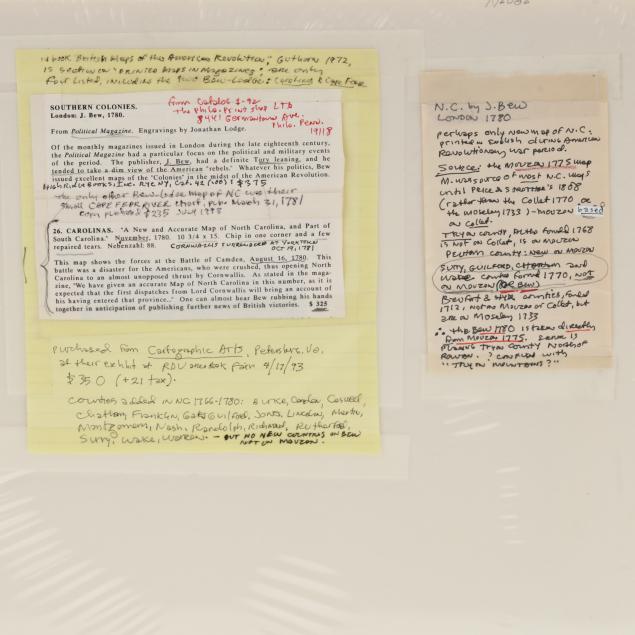 in book British Maps of the American Revolution, Guthorn 1972,
is section on "printed maps in magazines"; are only
four listed, including the two Bew-Lodge: Carolina & Cape Fear
SOUTHERN COLONIES.
London: J. Bew, 1780.
from Catalog 5-92
The Phila. Print Shop LTD
8441 Germantown Ave.
Phila. Penn.
19118
From Political Magazine. Engravings by Jonathan Lodge.
Of the monthly magazines issued in London during the late eighteenth century,
the Political Magazine had a particular focus on the political and military events
of the period. The publisher, J. Bew, had a definite Tory leaning, and he
tended to take a dim view of the American "rebels." Whatever his politics, Bew
issued excellent maps of the 'Colonies' in the midst of the American Revolution.
High Ridge Books, Inc. Rye NY, Cat. 42 $375
the only other Bew-Lodge map of NC was their
small CAPE FEAR RIVER chart, pub. March 31, 1781
copy purchased $235 July 1993
26. CAROLINAS. "A New and Accurate Map of North Carolina, and Part of
South Carolina." November, 1780. 10 3/4 x 15. Chip in one corner and a few
repaired tears. Nebenzahl: 88.
CORNWALLIS SURRENDERED AT YORKTOWN
OCT 19, 1781
This map shows the forces at the Battle of Camden, August 16, 1780. This
battle was a disaster for the Americans, who were crushed, thus opening North
Carolina to an almost unopposed thrust by Cornwallis. As stated in the maga-
zine, "We have given an accurate Map of North Carolina in this number, as it is
expected that the first dispatches from Lord Cornwallis will bring an account of
his having entered that province.." One can almost hear Bew rubbing his hands
together in anticipation of publishing further news of British victories. $ 325
purchased from Cartographic Arts, Petersburg, Va.
at their exhibit at RDU book fair 4/17/93
$350 (+21 tax).
Counties added in NC 1766-1780: Burke, Camden, Caswell,
Chatham, Franklin, Gates, Guilford, Jones, Lincoln, Martin,
Montgomery, Nash, Randolph, Richmond, Rutherford,
Surry, Wake, Warren. - BUT NO NEW COUNTIES ON BEW
NOT ON MOUZON.
N.C. by J. Bew
LONDON 1780
perhaps only new map of N.C.
printed in English during American
Revolutionary War period.
Source: the MOUZON 1775 map
M. was source of most N.C. maps
until Price & Strother's 1808
(rather than the Collet 1770 or
the Moseley 1733) - MOUZON based
on Collet.
TRYON county, altho formed 1768
is not on Collet, is on MOUZON
PELHAM county: NEW on MOUZON
SURRY, GUILFORD, CHATHAM and
WAKE counties formed 1770, NOT
on MOUZON (OR BEW)
BEAUFORT & HYDE counties, formed
1712, not on Mouzon or Collet, but
are on Moseley 1733
∴ the BEW 1780 is taken directly
from MOUZON 1775. Error is
placing TRYON County North of
ROWAN. ? confused with
"TRYON MOUNTAINS?"